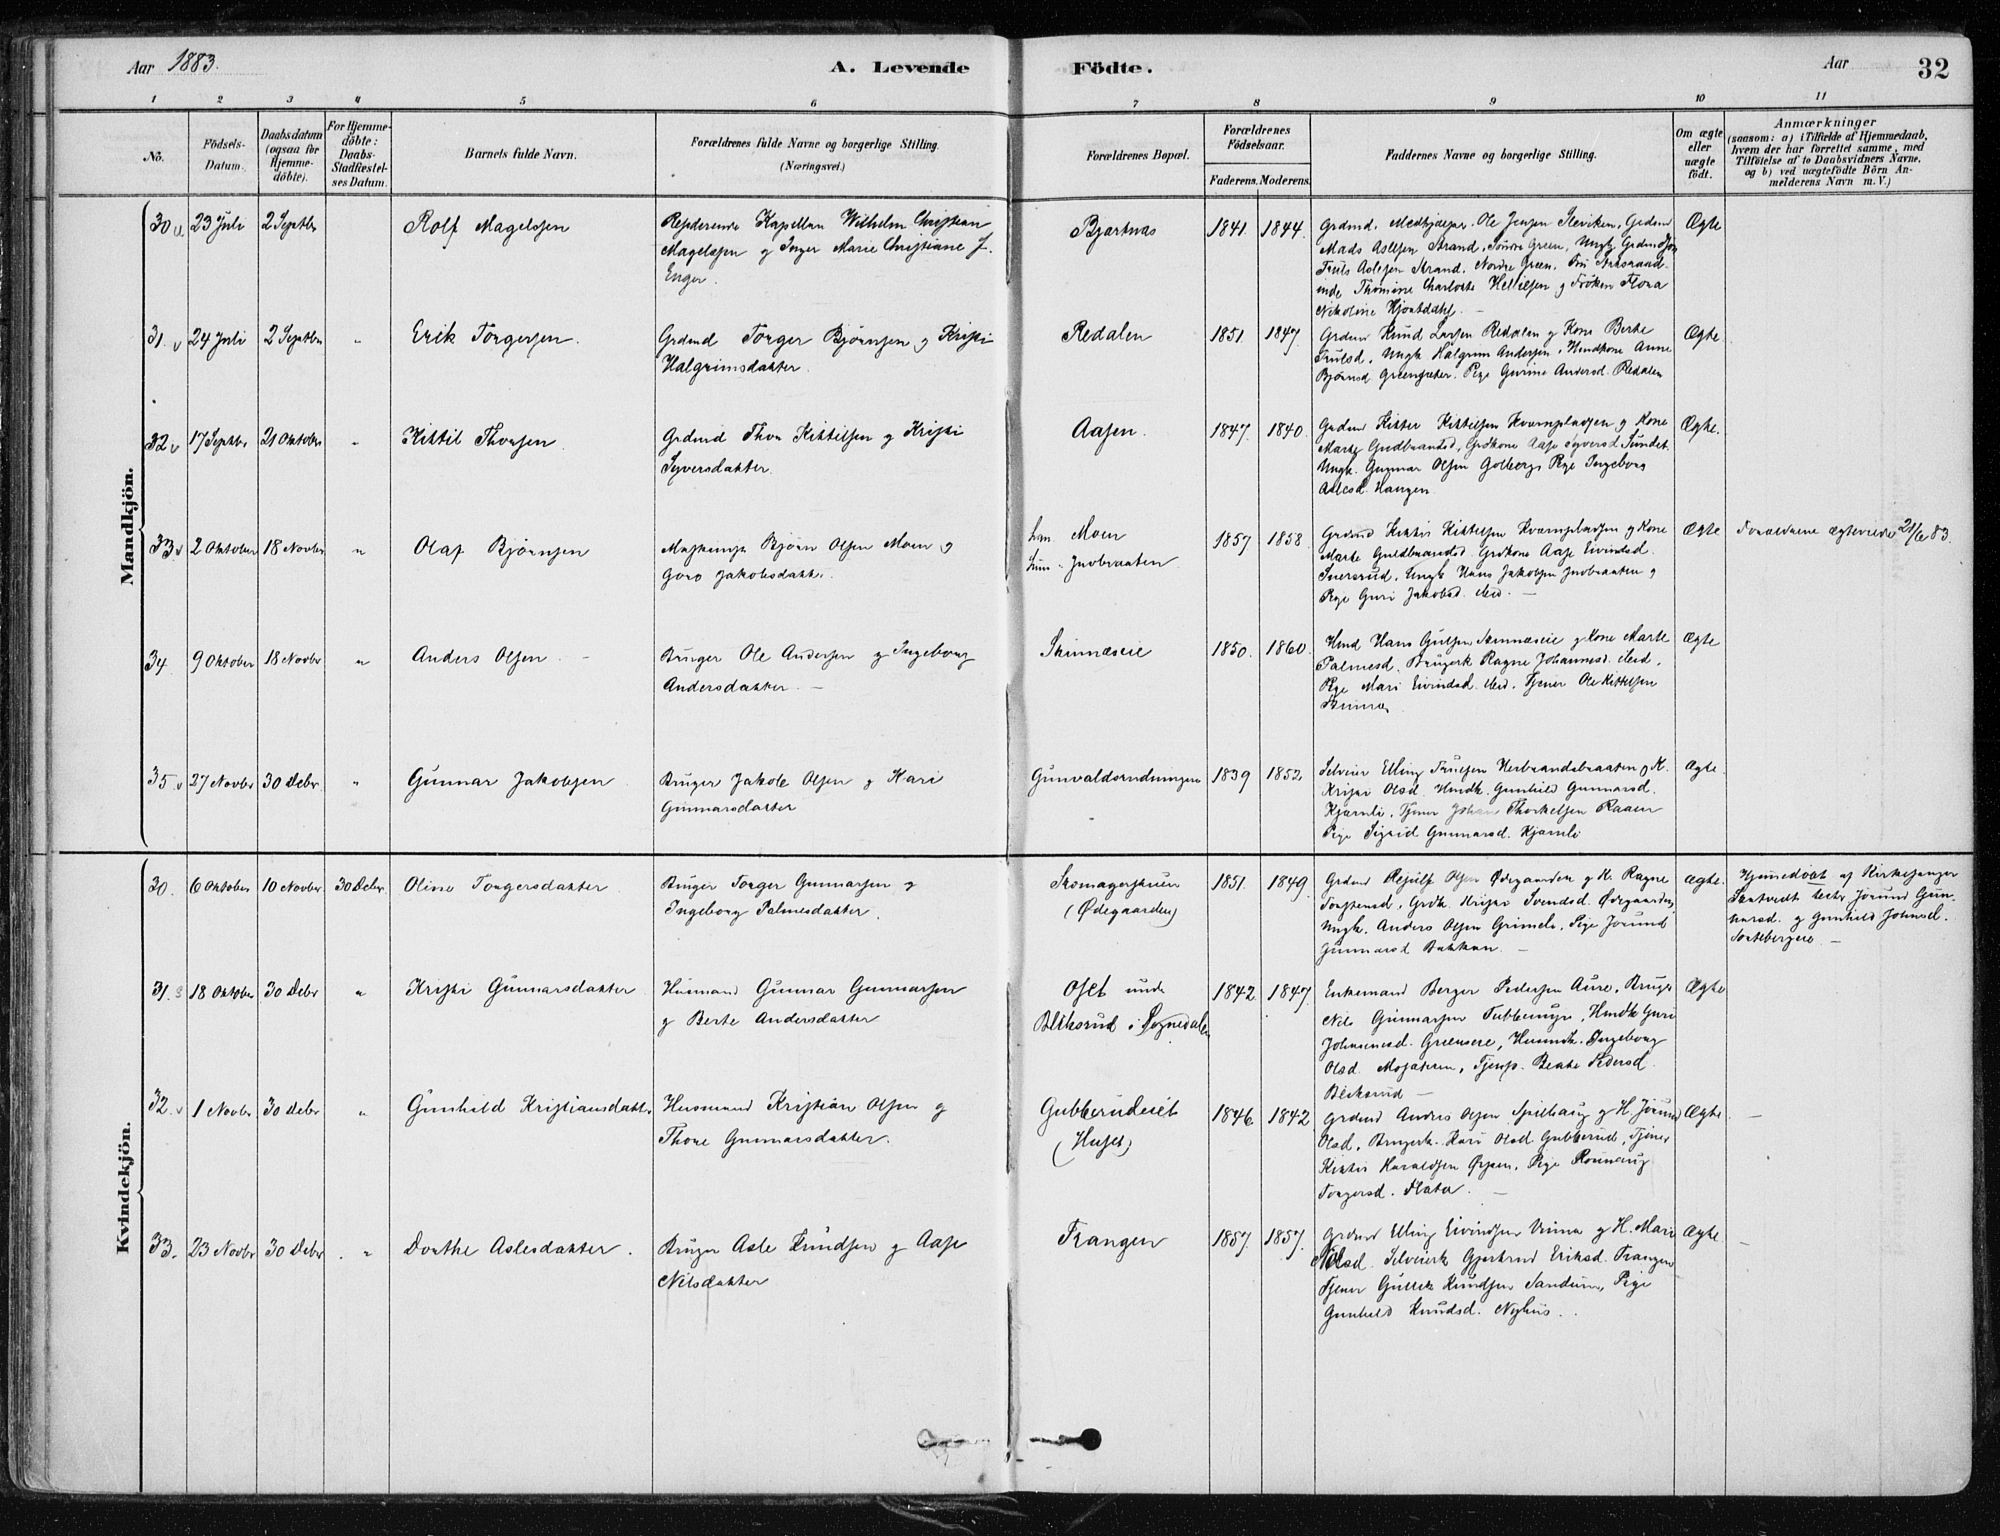 Aar 1883.
A. Levende Födte.
Aar
32
1 2 3 4 5 6 7 8 9 10 11
No.
Födsels-Datum.
Daabsdatum (ogsaa for Hjemmedöbte).
For Hjemmedöbte: Daabs-Stadfæstelses Datum.
Barnets fulde Navn.
Forældrenes fulde Navne og borgerlige Stilling. (Næringsvei.)
Forældrenes Bopæl.
Forældrenes Födselsaar.
Faderens. Moderens.
Faddernes Navne og borgerlige Stilling.
Om ægte eller uægte födt.
Anmærkninger
(saasom: a) i Tilfælde af Hjemmedaab,
hvem der har forrettet samme, med
Tilföielse af to Daabsvidners Navne,
og b) ved uægtefödte Börn An-
melderens Navn m. V.)
Mandkjön.
30 23 Juli 2 Septbr Rolf Magelssen
Residerende Kapellan Wilhelm Christian
Magelssen og Inger Marie Christiane J.
Enger.
Bjertnæs 1841. 1844.
Grdmd. Medhjælper Ole Jensen Sleviken, Grdmd
Mads Aslesen Strand, Søndre Green, Ungk. Grdmdssøn
Truls Aslesen Strand, Nordre Green,
Thomine Charlotte Hellesen og Frøken Flora
Nikoline Hjortdahl. —
Ægte
31. 24 Juli 2 Septbr " Erik Torgersen.
Grdmd Torger Bjørnsen og Kristi
Halgrimsdatter.
Redalen 1851. 1847.
Grdmd Knud Larsen Redalen og Kone Berte
Trulsd. Ungk Halgrim Andersen, Hmdkone Anne
Bjørnsd. Pige Gurine Andersd. Redalen
Ægte.
32 17 Septbr 21 Oktober " Kittil Thorsen.
Grdmd Thor Kittelsen og Kristi
Syversdatter.
Aasen. 1847. 1840.
Grdmd Kittil Kittelsen Kvernpladsen og Kone
Marte Guldbrandsd, Grdkone Aase Syversd Sundet.
Ungk. Gunnar Olsen Golberg, Pige Ingeborg
Aslesd. Haugen
Ægte.
33. 2 Oktober 18 Novbr " Olaf Bjørnsen
Bjørn Olsen Moen og
Goro Jakobsdatt.
han Moen
hun
1857 1858.
Grdmd Kittil Kittelsen Kvernpladsen og Kone
Marte Guldbrandsd. Grdkone Aase Eivindsd.
Ungk Hans Jakobsen
Pige Guri Jakobsd. ibid. —
Ægte
Forældrene ægteviede 21/6 83.
34. 9 Oktober 18 Novbr " Anders Olsen —
Bruger Ole Andersen og Ingeborg
Andersdatter. —
1850. 1860.
Hmd Hans Gulsen og Kone Marte
Palmesd. Brugerk Ragne Johannesd. ibid,
Pige Mari Eivindsd. ibid, Tjener Ole Kittelsen
Ægte
35 27 Novbr 30 Debr. " Gunnar Jakobsen
Bruger Jakob Olsen og Kari
Gunnarsdatter
1839 1852.
Selveier Elling Trulsen Herbrandsbraaten og K.
Kristi Olsd. Hmdk. Gunhild Gunnarsd.
Kjærnli, Tjener Johan Thorkelsen Raaen
Pige Sigrid Gunnarsd. Kjærnli
Ægte.
Kvindekjön.
30. 6 Oktober 10 Novbr 30 Debr. Oline Torgersdatter.
Bruger Torger Gunnarsen og
Ingeborg Palmesdatter.
Skomagerstuen
(Ødegaarden)
1851. 1849.
Grdmd Olsen Ødegaarden og K. Ragne
Torstensd, Grdk. Kristi Svendsd. Ødegaarden,
Ungk. Anders Olsen Grimeli, Pige Jørund
Gunnarsd Bakken. —
Ægte.
Hjemmedøbt af Kirkesanger
Jørund Gun-
narsd. og Gunhild Johnsd.
31. 18 Oktober 30 Debr " Kristi Gunnarsdatter.
Husmand Gunnar Gunnarsen
og Berte Andersdatter
Oset under
Bleksrud i Sognedalen
1842 1847.
Enkemand Berger Pedersen Aure, Bruger
Nils Gunnarsen Hmdk Guri
Johannesd. Ingeborg
Olsd. Tjensp. Beate Pedersd
Bleksrud —
Ægte
32. 1 Novbr 30 Debr " Gunhild Kristiansdatt.
Husmand Kristian Olsen og
Thore Gunnarsdatter.
Gubberudeiet
(Huset)
1846. 1842
Grdmd Anders Olsen Spilhaug og H. Jørund
Olsd, Brugerk. Kari Olsd Gubberud, Tjener
Kittil Haraldsen Pige Rønnaug
Torgersd. Flata. —
Ægte
33. 23 Novbr 30 Debr. " Dorthe Aslesdatter.
Bruger Asle Knudsen og Aase
Nilsdatter
Trangen 1857. 1857.
Grdmd Elling Eivindsen og H. Mari
Nilsd. Selveierk Gjertrud Eriksd. Trangen
Tjener Gullek Knudsen Sandum, Pige
Gunhild Knudsd. Nyhus.
Ægte.